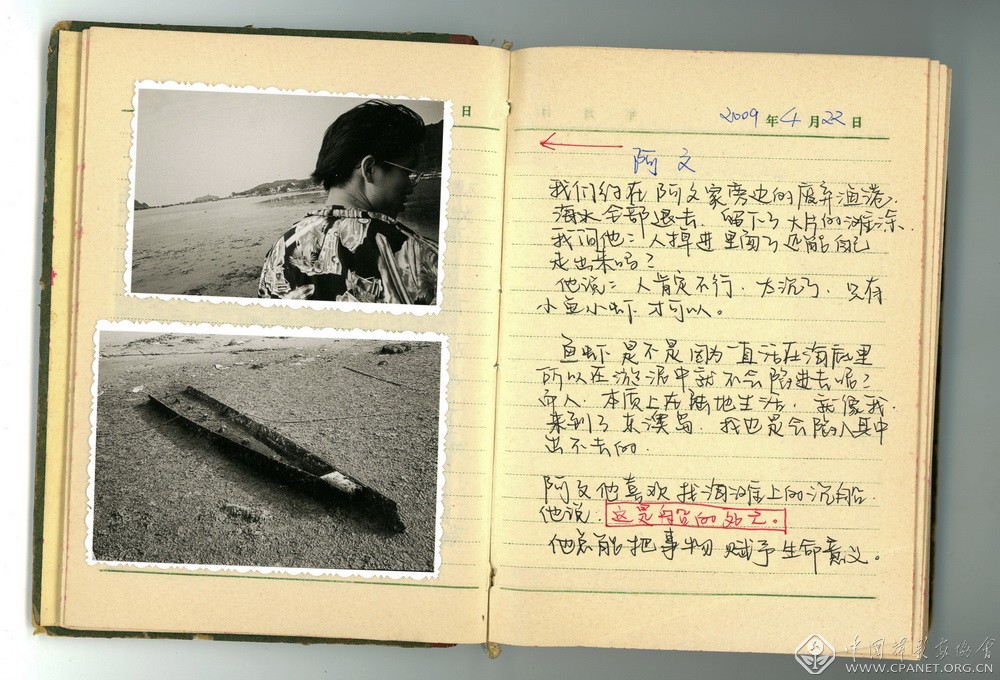 日
2009 年 4 月 22 日
阿文
我们约在阿文家旁边的废弃渔港.
海水全部退去. 留下了大片的滩涂.
我问他: 人掉进里面了还能自己
走出来吗?
他说: 人肯定不行. 太沉了. 只有
小鱼小虾才可以。
鱼虾是不是因为一直活在海底里
所以在淤泥中就不会陷进去呢?
而人. 本质上在陆地生活. 就像我.
来到了东澳岛. 我也是会陷入其中
出不去的.
阿文他喜欢找海滩上的沉船.
他说. 这是
他总能把事物赋予生命意义。
中國攝影家協會
WWW.CPANET.ORG.CN